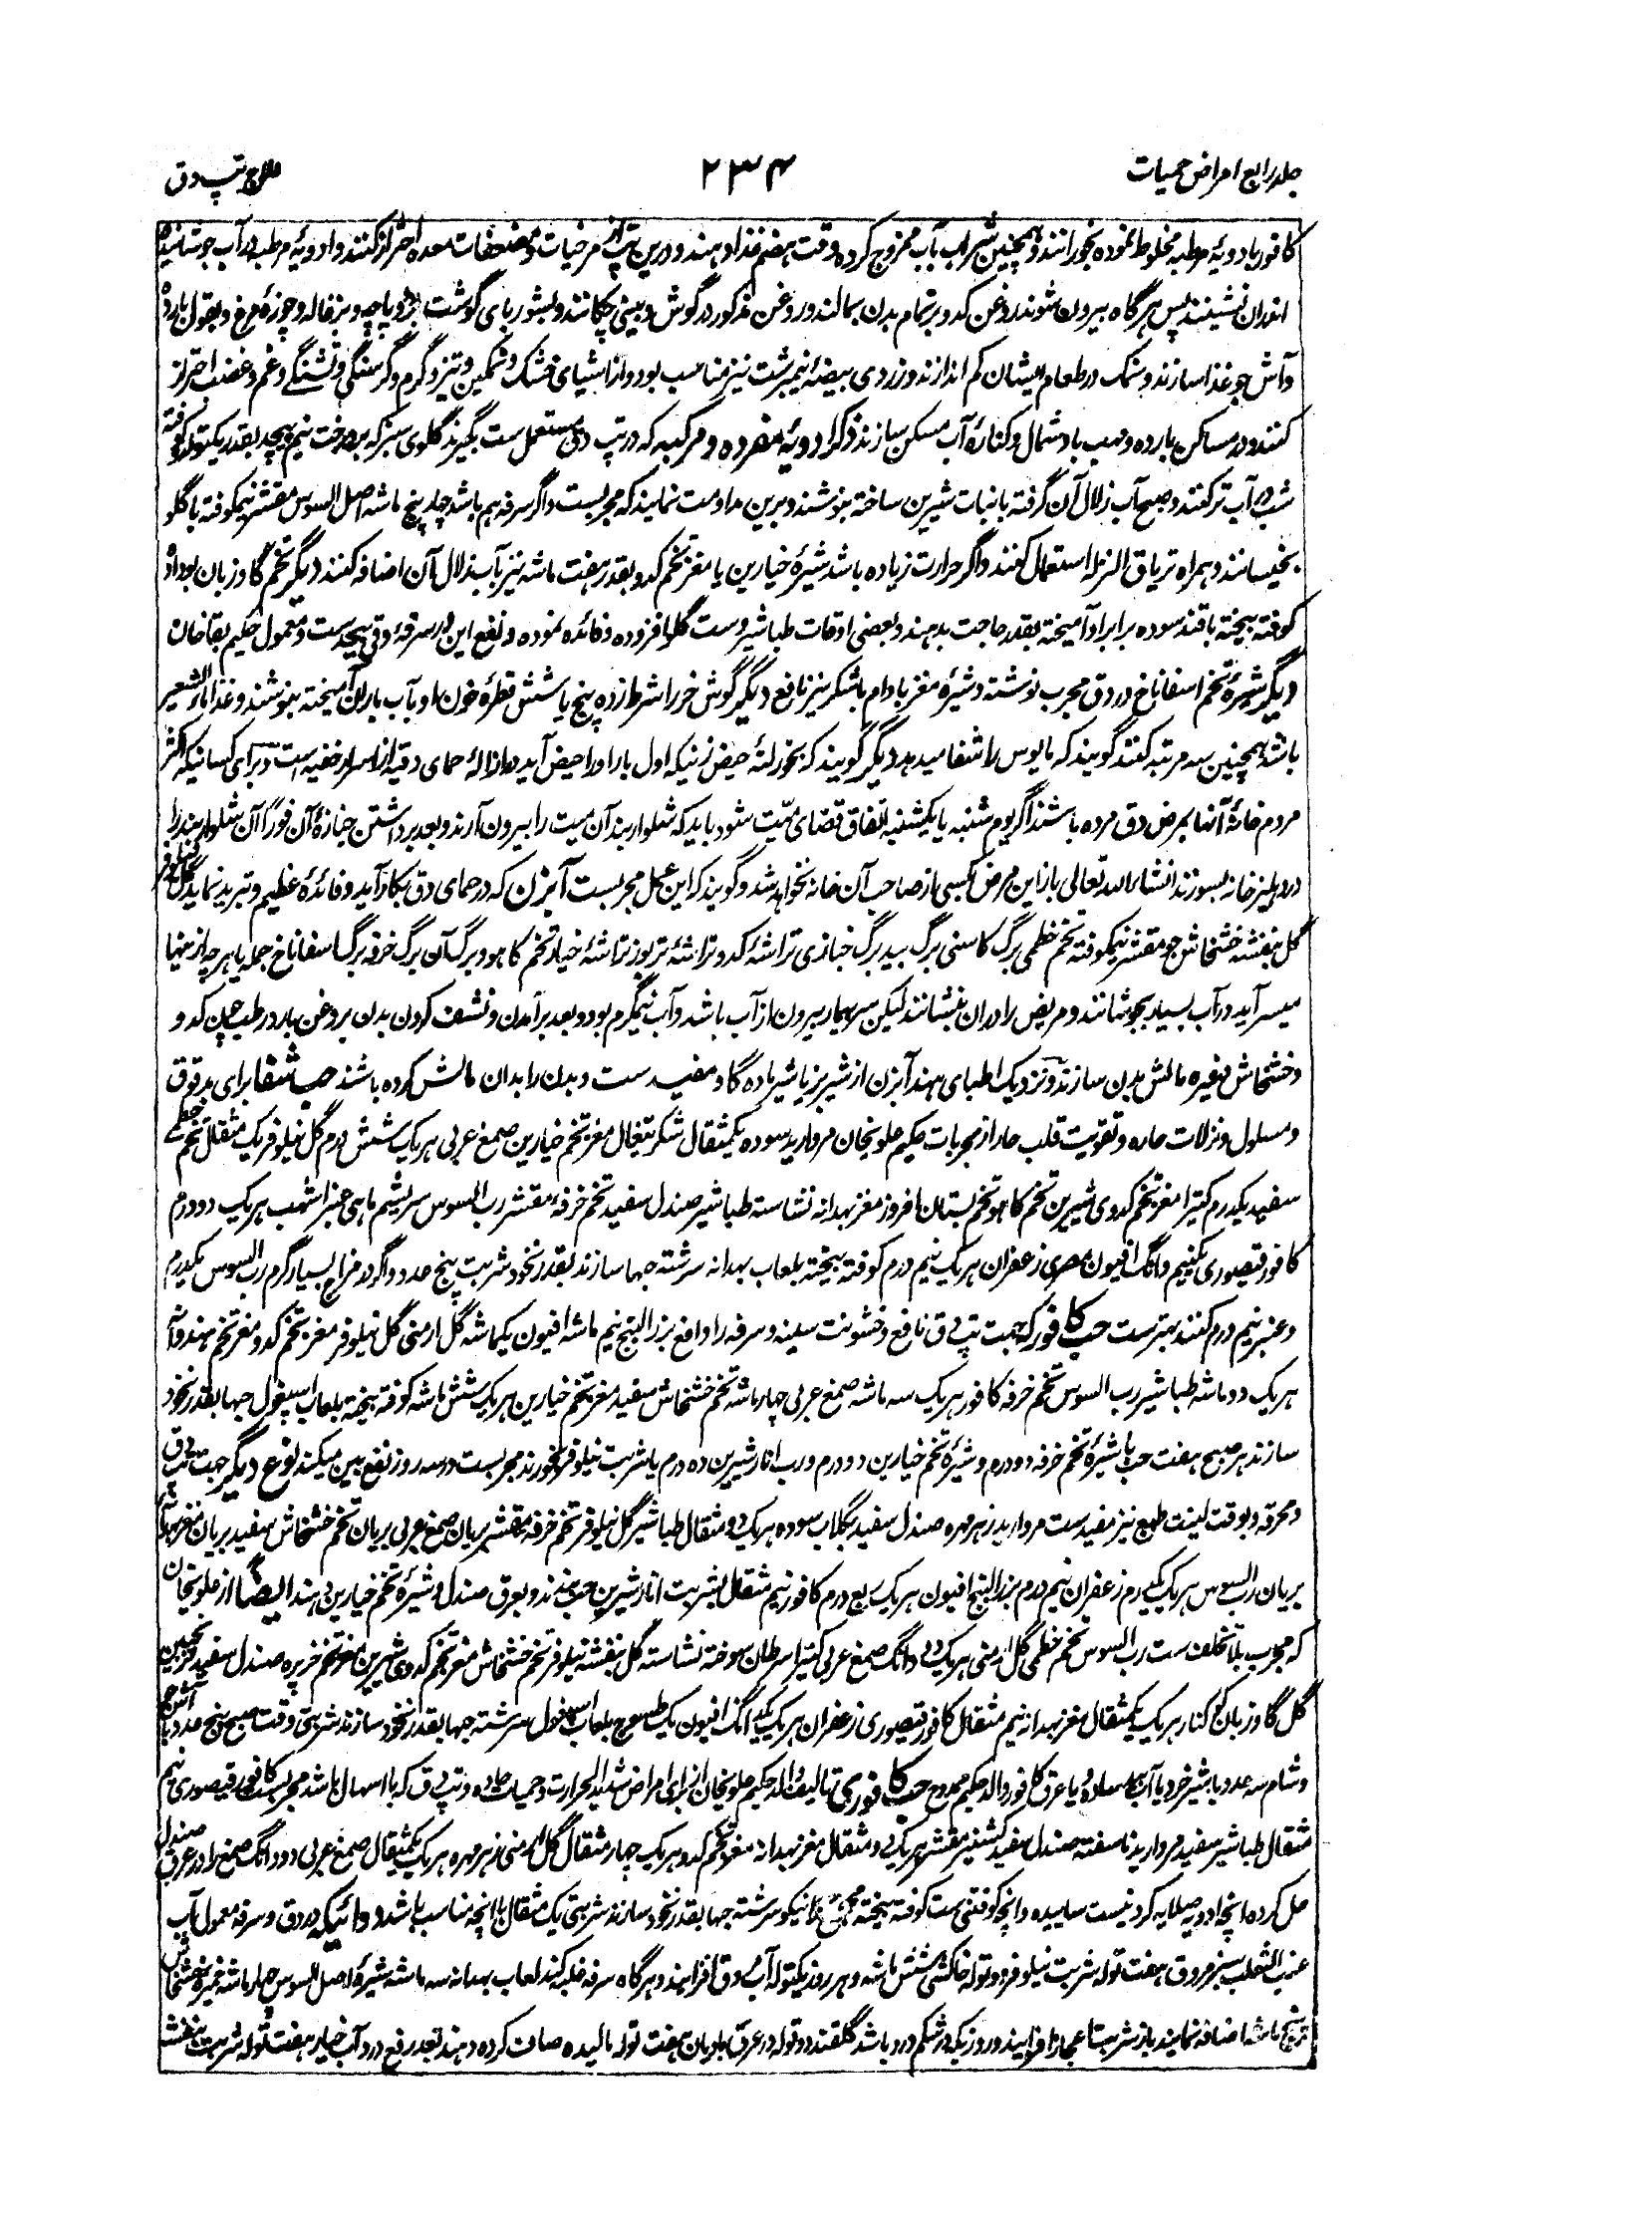 جلد رابع امراض حمیات
۲۳۴
علاج تپ دق
کافور بادویهٔ مرطبه مخلوط نموده بخورانند و همچنین شراب بآب ممزوج کرده وقت هضم غذا دهند و درین تپ از مرخیات و مضعفات معده احتراز کنند و ادویهٔ مرطبه در آب جوشانیده
اندران نشینند پس هرگاه بیرون شوند روغن کدو بر تمام بدن بمالند و روغن مذکور در گوش و بینی چکانند و بشوربای گوشت بز و پاچه و بزغاله و چوزهٔ مرغ و بقول بارده
و آش جو غذا سازند و نمک در طعام ایشان کم اندازند و زردی بیضهٔ نیمبرشت نیز مناسب بود و از اشیای خشک و نمکین و تیز و گرم و گرسنگی و تشنگی و غم و غضب احتراز
کنند و در مساکن بارده و مهب باد شمال و کنارهٔ آب مسکن سازند ذکر ادویهٔ مفرده و مرکبه که در تپ دق مستعمل ست بگیرند گلوی سبز که بر درخت نیم پیچد بقدر یکتوله کوفته
شب در آب تر کنند و صبح آب زلال آن گرفته با نبات شیرین ساخته بنوشند و برین مداومت نمایند که مجربست و اگر سرفه هم باشد چهار پنج ماشه اصل السوس مقشر نیمکوفته با گلو
بخیسانند و همراه تریاق النزله استعمال کنند و اگر حرارت زیاده باشد شیرهٔ خیارین یا مغز تخم کدو بقدر هفت ماشه نیز بآب زلال آن اضافه کنند دیگر تخم گاوزبان بوداده
کوفته بیخته با قند سوده برابر او آمیخته بقدر حاجت بدهند و بعضی اوقات طباشیر و ست گلو افزوده و فائده نموده و نفع این در سرفهٔ دقی بیحدست و معمول حکیم بقا خان
دیگر شیرهٔ تخم اسفاناخ در دق مجرب نوشته و شیرهٔ مغز بادام با شکر نیز نافع دیگر گوش خر را شرط زده پنج یا شش قطرهٔ خون او بآب باران آمیخته بنوشند و غذا ماء الشعیر
باشد همچنین سه مرتبه کنند گویند که مایوس را شفا میدهد دیگر گویند که بخور لتهٔ حیض زنیکه اول بار او را حیض آید در ازالهٔ حمای دقیه از اسرار خفیه است و برای کسانیکه اکثر
مردم خانهٔ آنها بمرض دق مرده باشند اگر یوم شنبه یا یکشنبه اتفاق قضای میّت شود باید که شلوار بند آن میت را بیرون آرند و بعد برداشتن جنازهٔ آن فوراً آن شلوار بند را
در دهلیز خانه بسوزند انشاء الله تعالی باز این مرض بکسی از صاحب آن خانه نخواهد شد و گویند که این عمل مجربست آبزن که در حمای دق بکار آید و فائدهٔ عظیم و تبرید نماید گل نیلوفر
گل بنفشه خشخاش جو مقشر نیمکوفته تخم خطمی برگ کاسنی برگ بید برگ خبازی تراشهٔ کدو تراشهٔ تربوز تراشهٔ خیار تخم کاهو و برگ آن برگ خرفه برگ اسفاناخ جمله یا هرچه از ینها
میسر آید در آب بسیار بجوشانند و مریض را دران بنشانند لیکن سر بیمار بیرون از آب باشد و آب نیمگرم بود و بعد برآمدن و نشف کردن بدن بروغن بارد رطب چون کدو و
و خشخاش وغیره مالش بدن سازند و نزدیک اطبای هند آبزن از شیر بز یا شیر ماده گاو مفیدست و بدن را بدان مالش کرده باشند حب شفا برای مدقوق
و مسلول و نزلات حاره و تقویت قلب حار از مجربات حکیم علویخان مروارید سوده یکمثقال شکر تیغال مغز تخم خیارین صمغ عربی هریک شش درم گل نیلوفر یک مثقال تخم خطمی
سفید یکدرم کتیرا مغز تخم کدوی شیرین تخم کاهو تخم بستان افروز مغز بهدانه نشاسته طباشیر صندل سفید تخم خرفهٔ مقشر رب السوس سریشم ماهی عنبر اشهب هریک دو درم
کافور قیصوری یکنیم دانگ افیون مصری زعفران هریک نیم درم کوفته بیخته بلعاب بهدانه سرشته حبها سازند بقدر نخود شربت پنج عدد و اگر در مزاج بسیار گرم رب السوس یکدرم
و عنبر نیم درم کنند بهترست حب کافور که جهت تپ دق نافع و خشونت سینه و سرفه را دافع بزر البنج نیم ماشه افیون یکماشه گل ارمنی گل نیلوفر مغز تخم کدو مغز تخم هندوانه
هریک دو ماشه طباشیر رب السوس تخم خرفه کافور هریک سه ماشه صمغ عربی چهار ماشه تخم خشخاش سفید مغز تخم خیارین هریک شش ماشه کوفته بیخته بلعاب اسپغول حبها بقدر نخود
سازند هر صبح هفت حب با شیرهٔ تخم خرفه دو درم و شیرهٔ تخم خیارین دو درم و رب انار شیرین ده درم یا شربت نیلوفر بخورند مجربست در سه روز نفع بین میکند نوع دیگر جهت تپ دق
و محرقه و بوقت لینت طبع نیز مفیدست مروارید زهرمهره صندل سفید بگلاب سوده هریک دو مثقال طباشیر گل نیلوفر تخم خرفه مقشر بریان صمغ عربی بریان تخم خشخاش سفید بریان مغز بهدانه
بریان رب السوس هریک یکدرم زعفران نیم درم بزر البنج افیون هریک ربع درم کافور نیم مثقال بشربت انار شیرین حب بندند و بعرق صندل و شیرهٔ تخم خیارین دهند ایضاً از علویخان
که مجرب بلا تخلف ست رب السوس تخم خطمی گل ارمنی هریک دو دانگ صمغ عربی کتیرا سرطان سوخته نشاسته گل بنفشه نیلوفر تخم خشخاش مغز تخم کدوی شیرین مغز تخم خربزه صندل سفید ترنجبین
گل گاوزبان کوکنار هریک یکمثقال مغز بهدانه نیم مثقال کافور قیصوری زعفران هریک یک دانگ افیون یک طسوج بلعاب اسپغول سرشته حبها بقدر نخود سازند شربتی وقت صبح پنج عدد با آش جو
و شام سه عدد با شیر خر و یا آب ساده یا عرق کافور والد حکیم ممدوح حب کافوری تالیف والد حکیم علویخان از برای امراض شدید الحرارت و حمیات حاده و تپ دق که با اسهال باشد مجربست کافور قیصوری نیم
مثقال طباشیر سفید مروارید ناسفته صندل سفید کشنیز مقشر هریک دو مثقال مغز بهدانه مغز تخم کدو هریک چهار مثقال گل ارمنی زهرمهره هریک یکمثقال صمغ عربی دو دانگ صمغ را در عرق صندل
حل کرده آنچه ادویه صلایه کردنیست ساییده و آنچه کوفتنی ست کوفته بیخته مجموع را نیکو سرشته حبها بقدر نخود سازند شربتی یک مثقال با آنچه مناسب باشد دوائیکه در دق و سرفه معمول آب
عنب الثعلب سبز مروق هفت توله شربت نیلوفر دو توله خاکشی شش ماشه و هر روز یکتوله آب مروق افزایند و هرگاه سرفه غلبه کند لعاب بهدانه سه ماشه شیرهٔ اصل السوس چهار ماشه خمیرهٔ خشخاش
پنج ماشه اضافه نمایند باز شربت اعجاز افزایند و روزیکه در شکم درد باشد گلقند دو توله در عرق بادیان هفت توله مالیده صاف کرده دهند بعد رفع درد آب خیار هفت توله شربت بنفشه